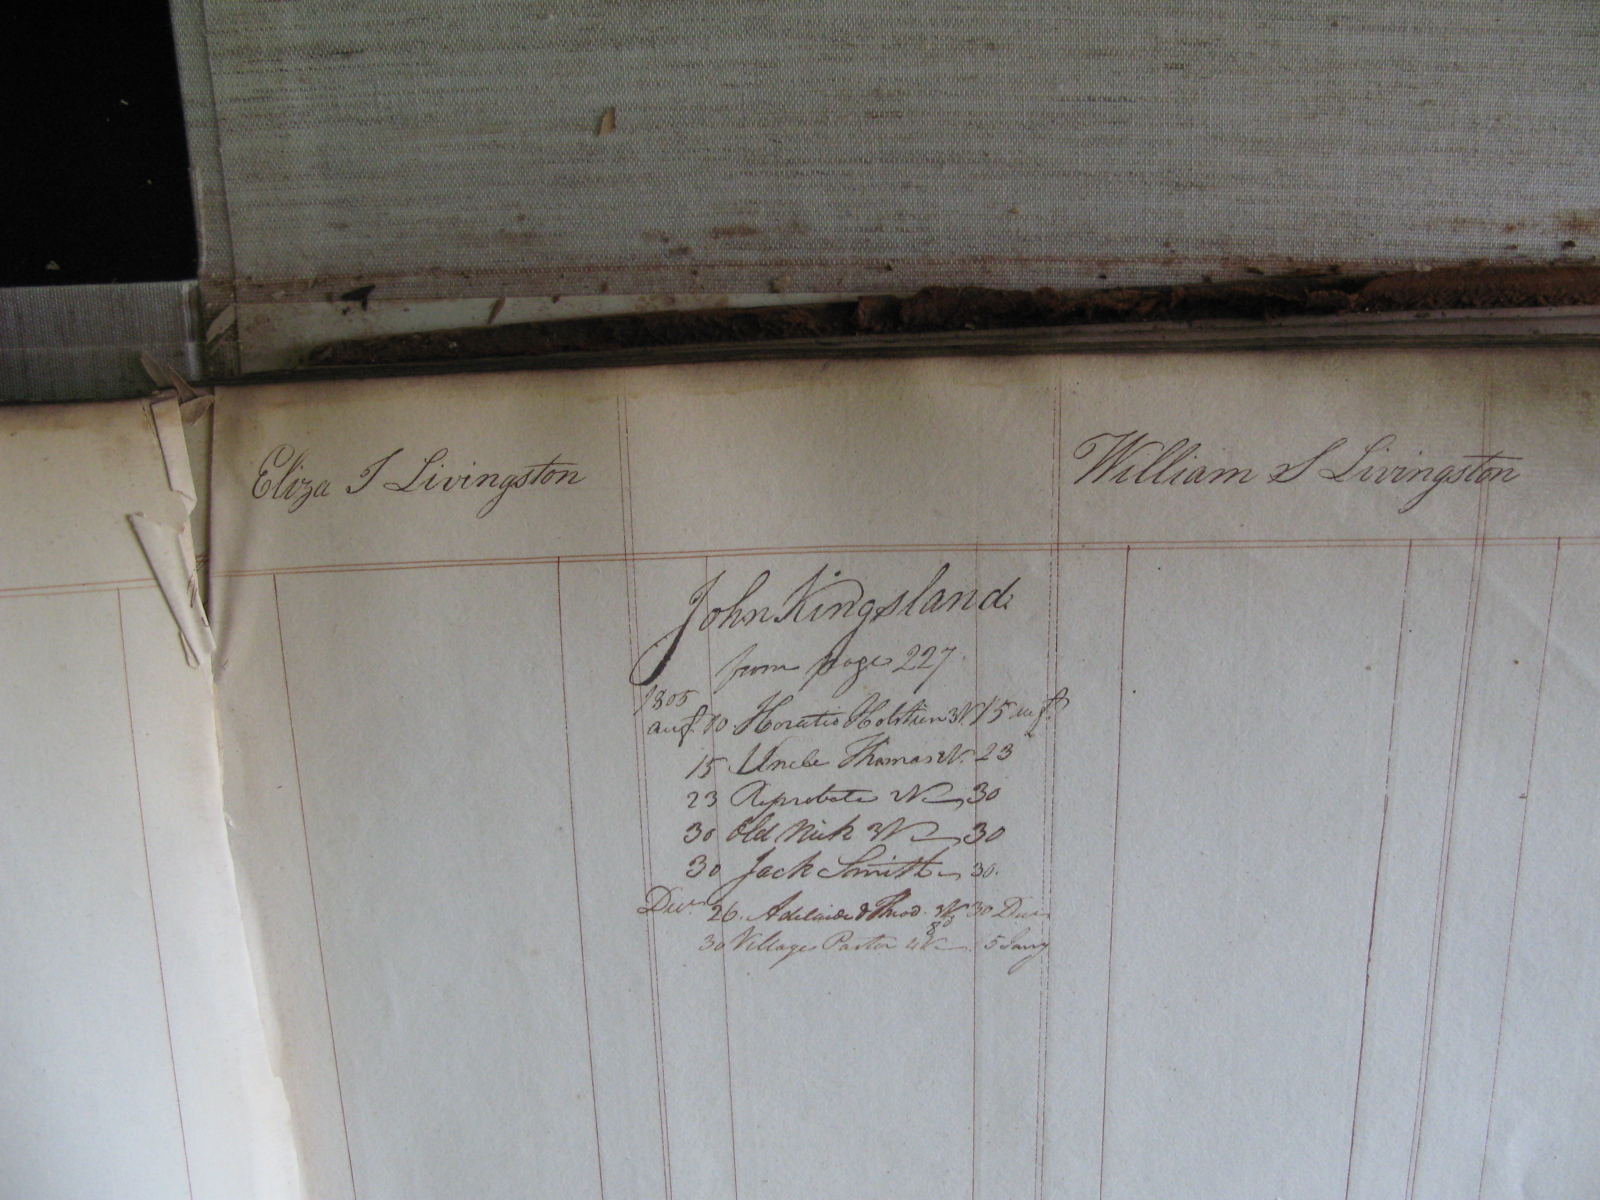 Eliza I Livingston
William S Livingston
John Kingsland
from page 227
1805
aug. 10 Horatio Holstien 3V. 15 augt.
15 Uncle Thomas 2V. 23
23 Reprobate 2V 30
30 Old Nick 3V 30
30 Jack Smith 30.
Decr. 26. Adelaide & Theod. 3V 30 Decr
30 Village Pastor 4V 5 Jany